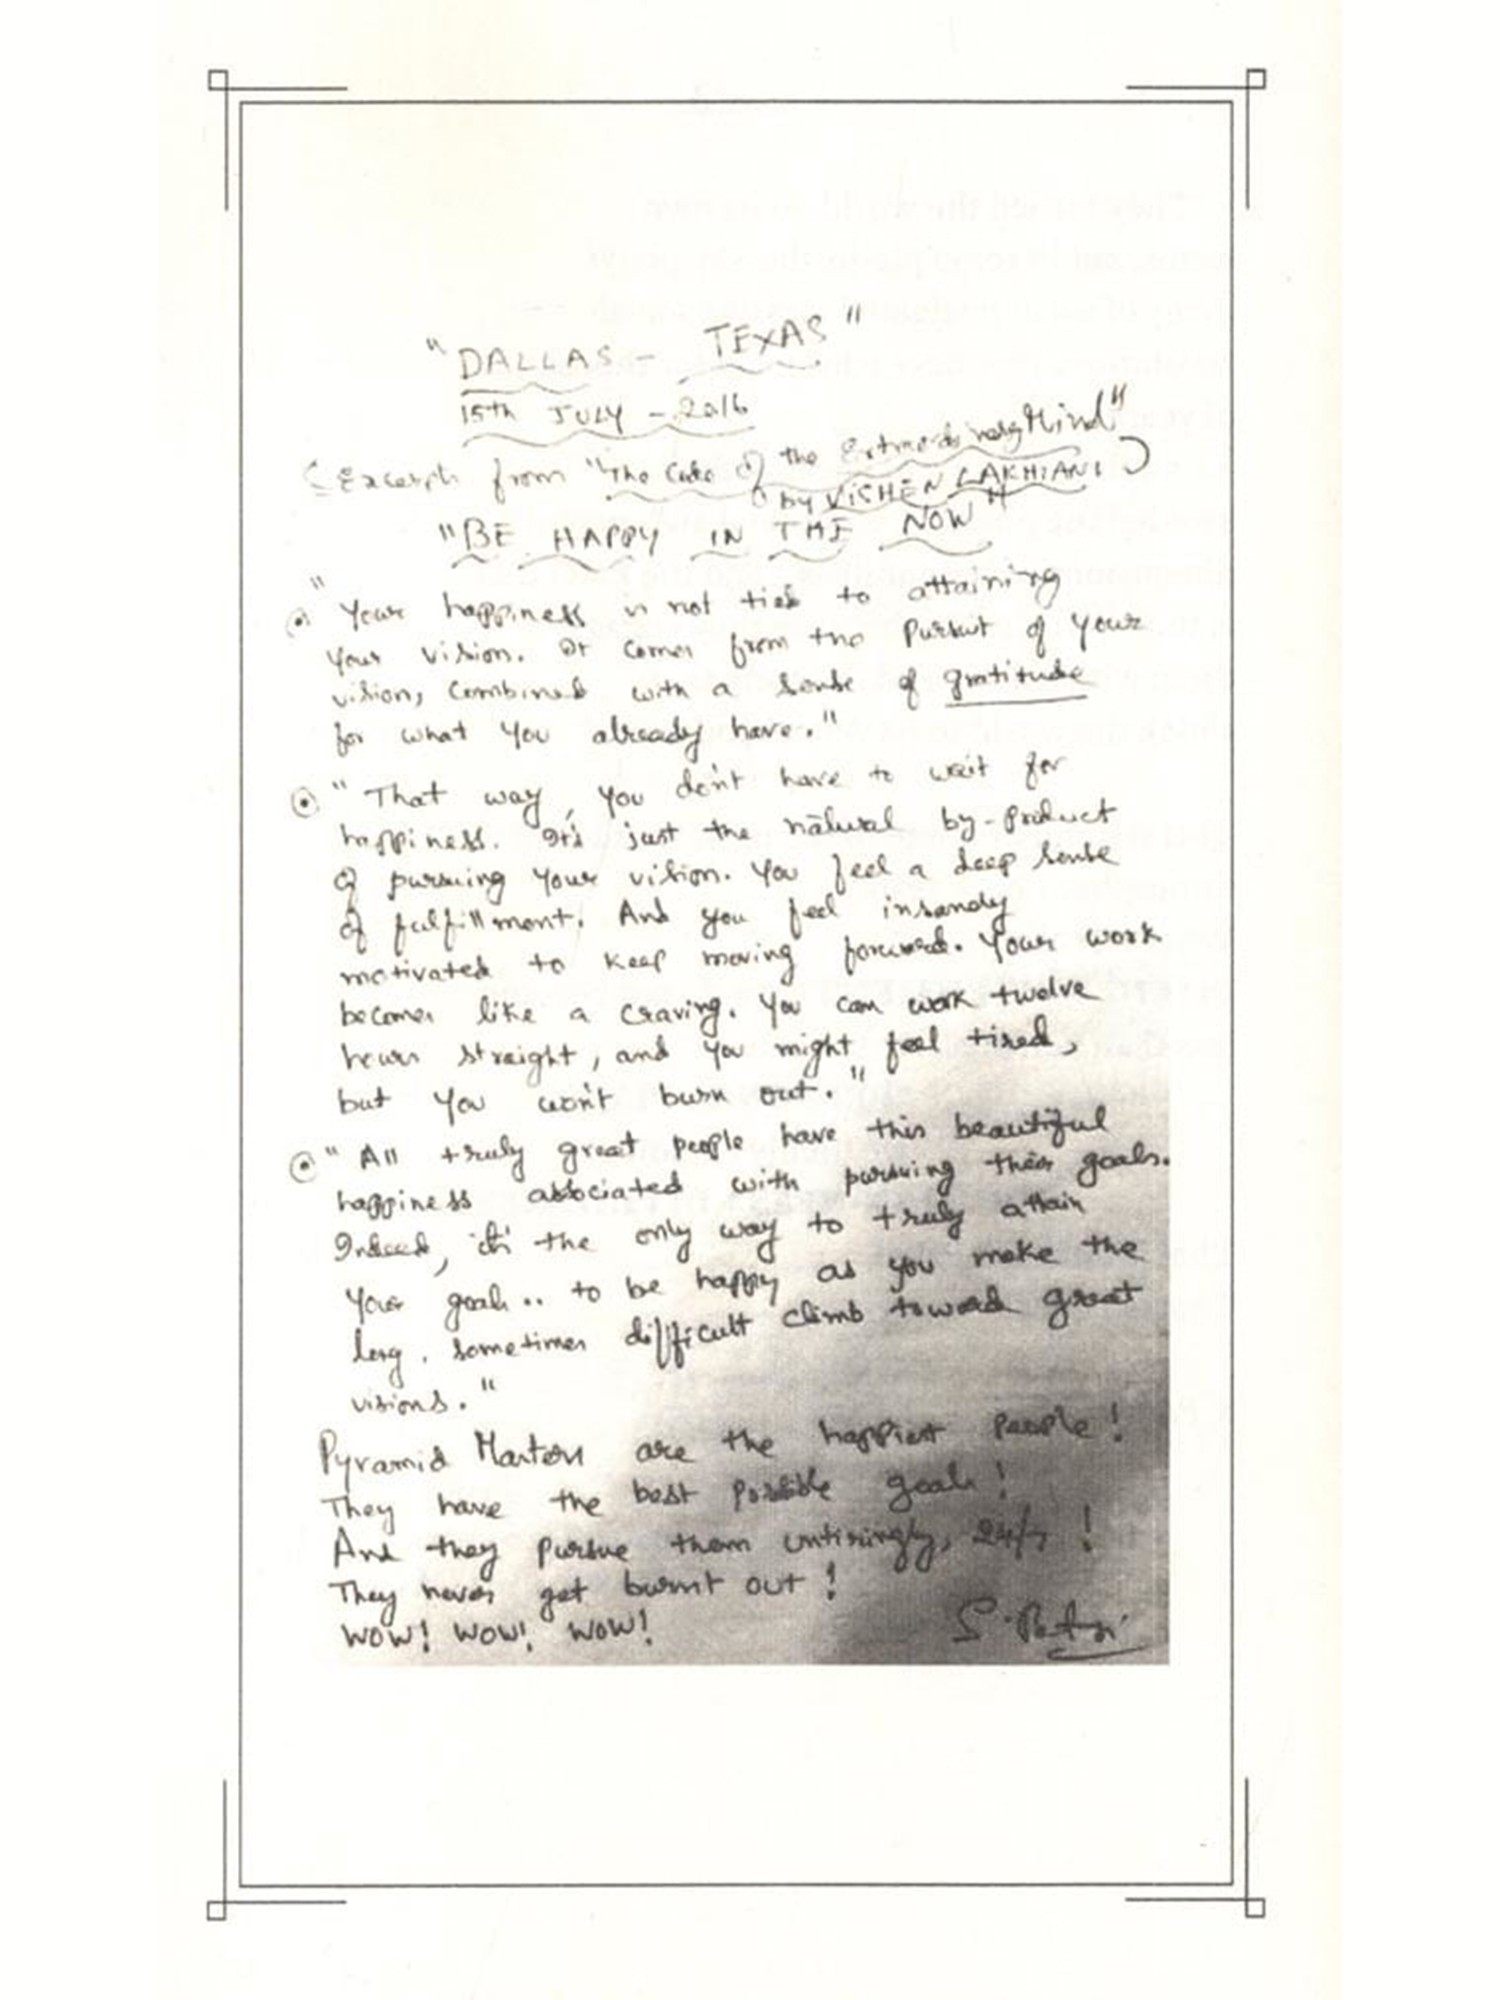 "DALLAS - TEXAS"
15th JULY - 2016
(Excerpts from "The Code of the Extraordinary Mind"
by VISHEN LAKHIANI)
"BE HAPPY IN THE NOW"
"Your happiness is not tied to attaining
your vision. It comes from the pursuit of your
vision, combined with a sense of gratitude
for what you already have."
"That way, you don't have to wait for
happiness. It's just the natural by-product
of pursuing your vision. You feel a deep sense
of fulfillment. And you feel insanely
motivated to keep moving forward. Your work
becomes like a craving. You can work twelve
hours straight, and you might feel tired,
but you won't burn out."
"All truly great people have this beautiful
happiness associated with pursuing their goals.
Indeed, it's the only way to truly attain
your goals.. to be happy as you make the
long, sometimes difficult climb toward great
visions."
Pyramid Masters are the happiest people!
They have the best possible goals!
And they pursue them untiringly, 24/7!
They never get burnt out!
WOW! WOW! WOW!
S. Patri